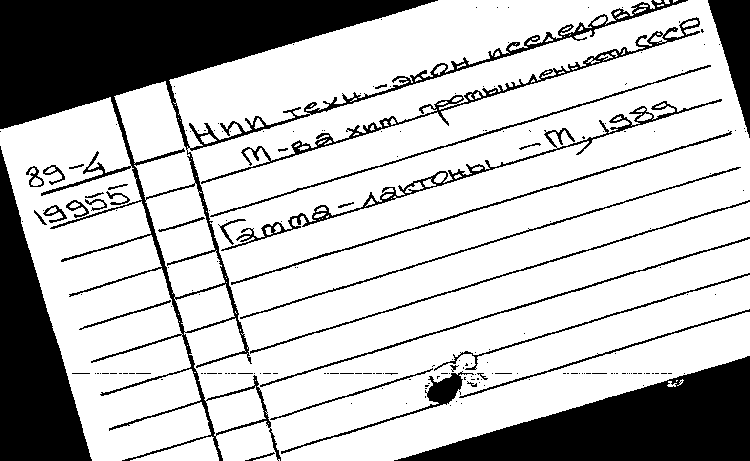 НИИ техн.-экон исследован
М-ва хим промышленности СССР.
89-4
19955
Гамма-лактоны. - М., 1989.